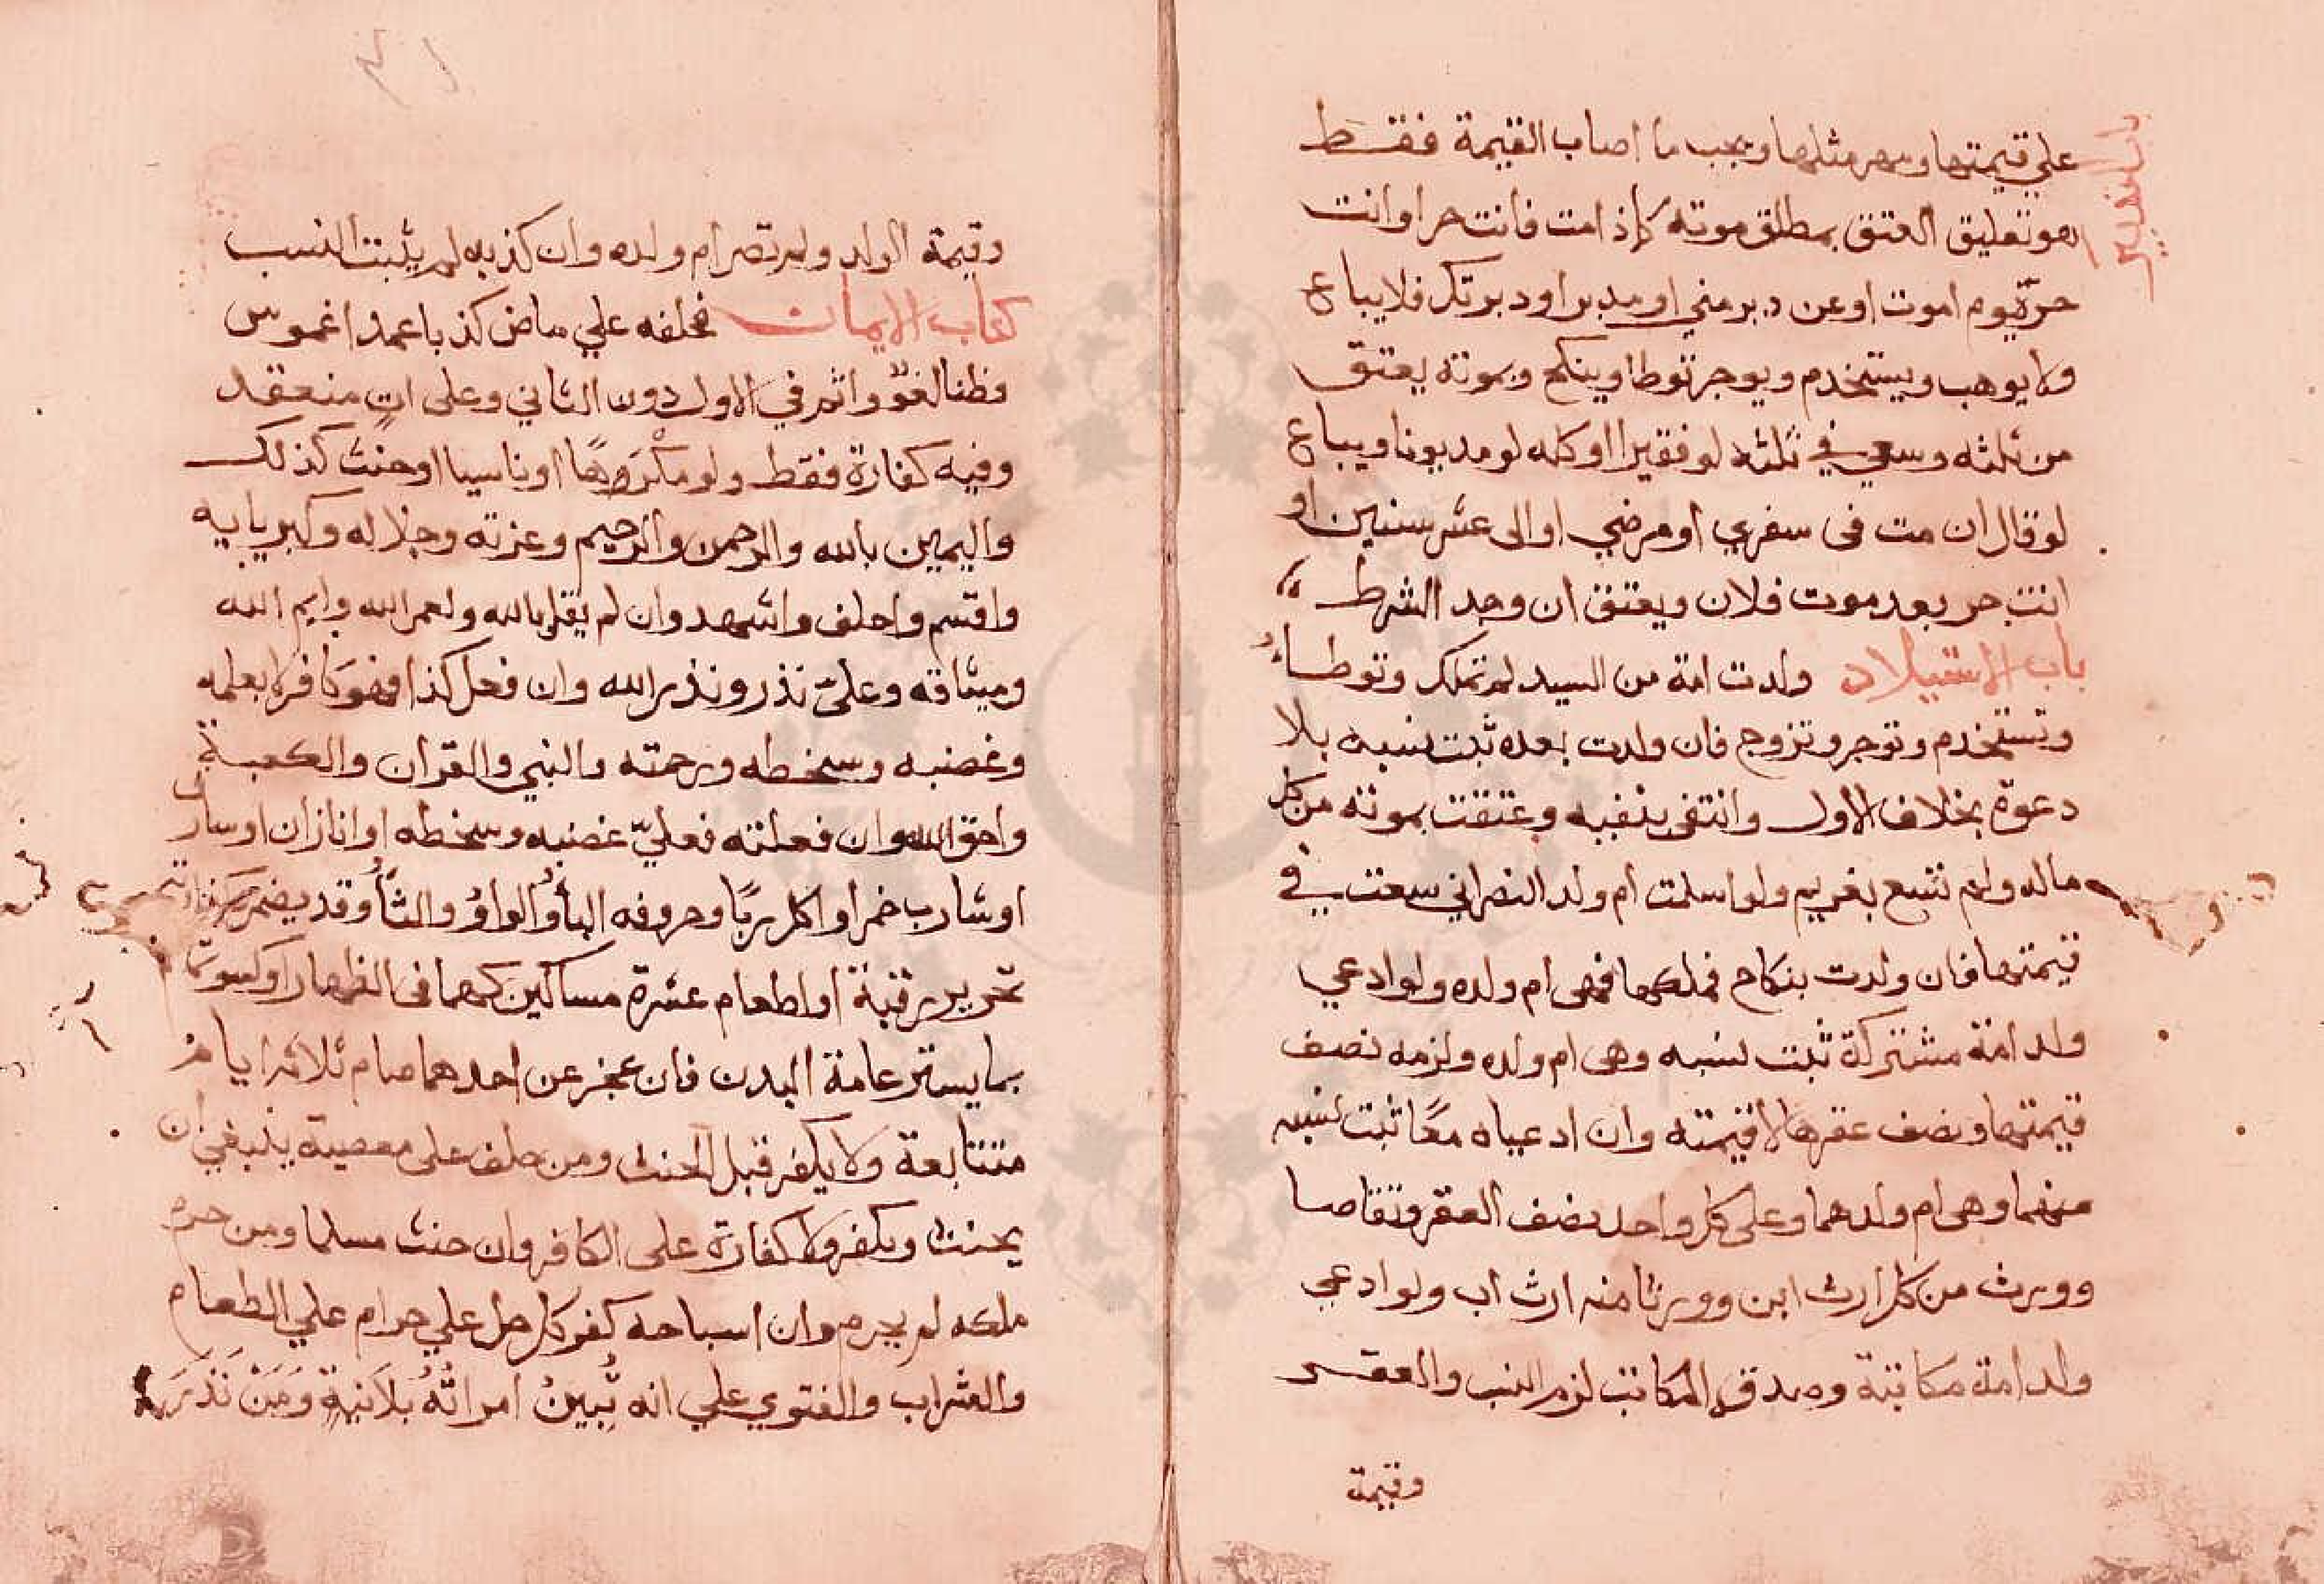 باب التدبير
علي قيمتها ومهر مثلها ويجب ما اصاب القيمة فقط
هو تعليق العتق بمطلق موته كإذا مت فانت حر او انت
حرّ يوم اموت او عن دبر مني او مدبر او دبرتك فلا يباع
ولا يوهب ويستخدم ويوجر توطا وينكح وبموته يعتق
من ثلثه وسعي في ثلثه لو فقيرا او كله لو مديونا ويباع
لو قال ان مت في سفري او مرضي او الى عشر سنين او
انت حر بعد موت فلان ويعتق ان وجد الشرط
باب الاستيلاد ولدت امة من السيد لم تملك وتوطاء
وتستخدم وتوجر وتزوج فان ولدت بعده ثبت نسبه بلا
دعوة بخلاف الاول وانتفى بنفيه وعتقت بموته من كل
ماله ولم تسع بغريم ولو اسلمت ام ولد النصراني سعت في
قيمتها فان ولدت بنكاح فملكها فهي ام ولده ولو ادعي
ولد امة مشتركة ثبت نسبه وهي ام ولده ولزمه نصف
قيمتها ونصف عقرها لا قيمته وان ادعياه معًا ثبت نسبه
منهما وهي ام ولدهما وعلى كل واحد نصف العقر وتقاصا
وورث من كل ارث ابن وورثا منه ارث اب ولو ادعي
ولد امة مكاتبة وصدق المكاتب لزم النسب والعقر
وقيمة
وقيمة الولد ولم تصر ام ولده وان كذبه لم يثبت النسب
كتاب الايمان فحلفه علي ماض كذبا عمدا غموس
وظنا لغوٌ واثم في الاول دون الثاني وعلى اتٍ منعقد
وفيه كفارة فقط ولو مكْرَوهًا او ناسيا او حنث كذلك
واليمين بالله والرحمن والرحيم وعزته وجلاله وكبريايه
واقسم واحلف واشهد وان لم يقل بالله ولعمر الله وايم الله
وميثاقه وعليّ نذر ونذر الله وان فعل كذا فهو كافر لا بعلمه
وغضبه وسخطه ورحمته والنبي والقران والكعبة
واحق الله وان فعلته فعليّ غضبه وسخطه او انا زان او سارق
او شارب خمر او اكل ربًا وحروفه البأ والواوُ والتأُ وقد يضمر
تحرير رقبة او اطعام عشرة مساكين كهما في الظهار او كسوتهم
بما يستر عامة البدن فان عجز عن احدهما صام ثلاثة ايام
متتابعة ولا يكفر قبل الحنث ومن حلف على معصية ينبغي ان
يحنث ويكفر ولا كفارة على الكافر وان حنث مسلما ومن حرم
ملكه لم يحرم وان اسباحه كفر كل حل علي حرام علي الطعام
والشراب والفتوي علي انه تُبِينُ امراتُهُ بلا نيةٍ ومَنْ نَذَرَ